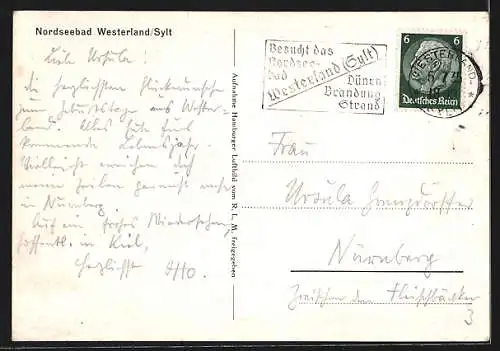 Nordseebad Westerland/Sylt
Liebe Ursula!
die herzlichsten Glückwünsche
zum Geburtstage aus Wester-
land. Alles Gute fürs
kommende Lebensjahr.
Vielleicht erreichen dich
meine Zeilen gar nicht mehr
in Nürnberg.
Auf ein frohes Wiedersehen
hoffentl. in Kiel,
Herzlichst Otto.
Aufnahme Hamburger Luftbild vom R. L. M. freigegeben
Besucht das
Nordsee-
bad
Westerland (Sylt)
Dünen
Brandung
Strand
6 6
Deutsches Reich
WESTERLAND
Frau
Ursula
Nürnberg
Zwischen den Fleischbänken
3